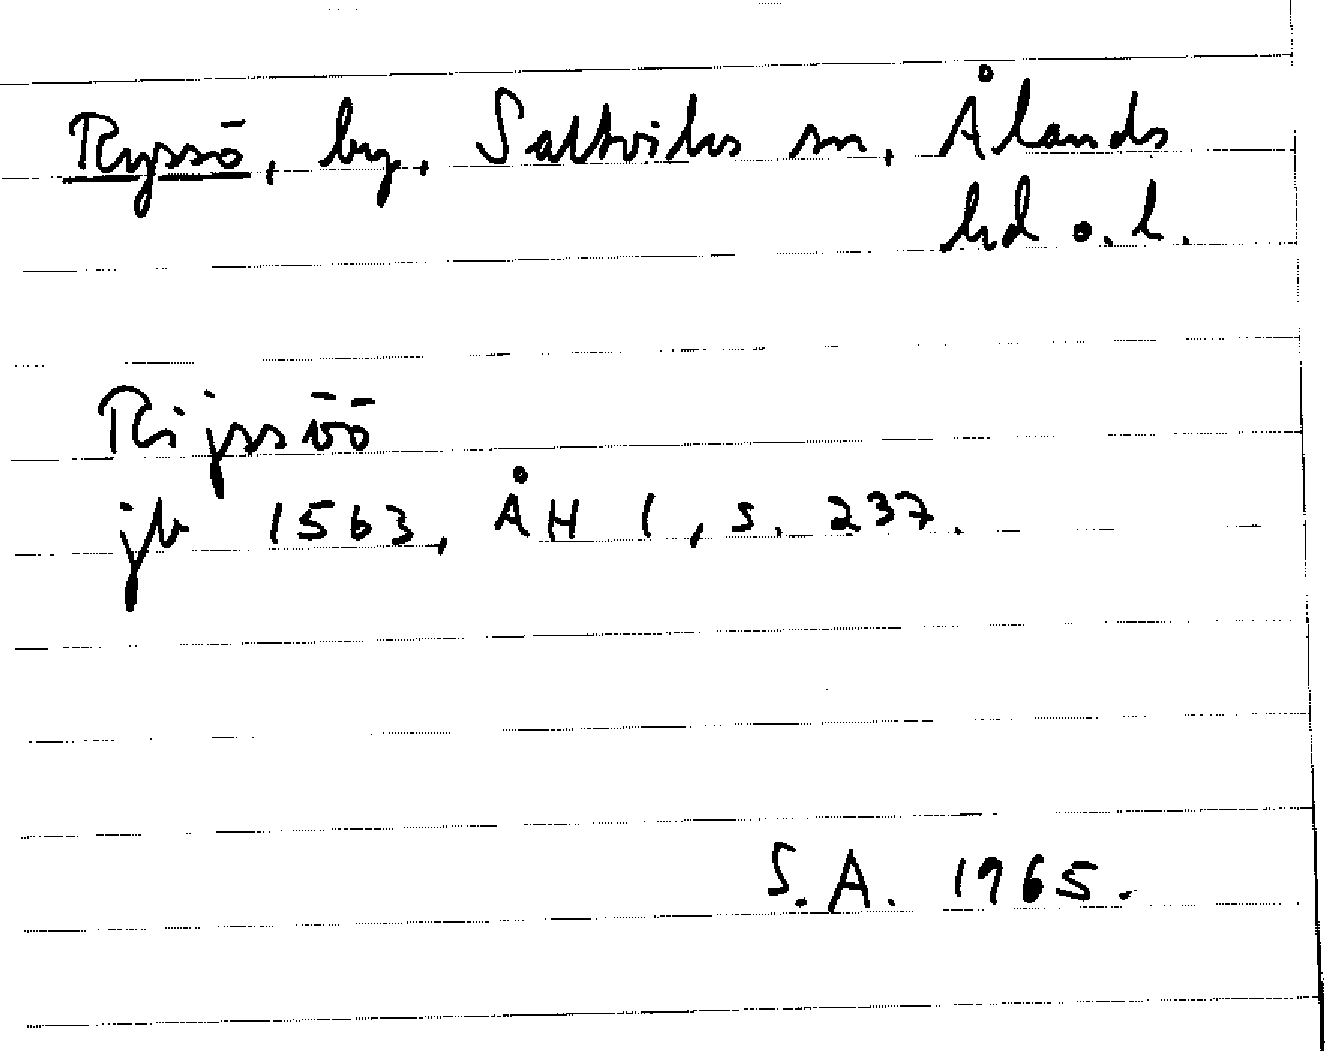 Ryssö, by, Saltviks sn, Ålands
hd o. l.
Rijssöö
jb 1563, ÅH 1, s. 237.
S.A. 1965.